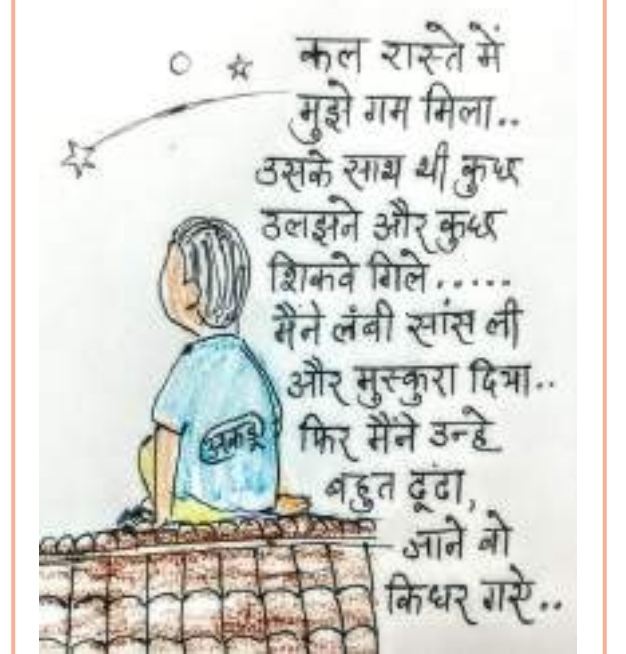 कल रास्ते में
मुझे गम मिला..
उसके साथ थी कुछ
उलझने और कुछ
शिकवे गिले.....
मैंने लंबी सांस ली
और मुस्कुरा दिया..
फिर मैंने उन्हे
बहुत ढूंढा,
जाने वो
किधर गए..
अकड़ू